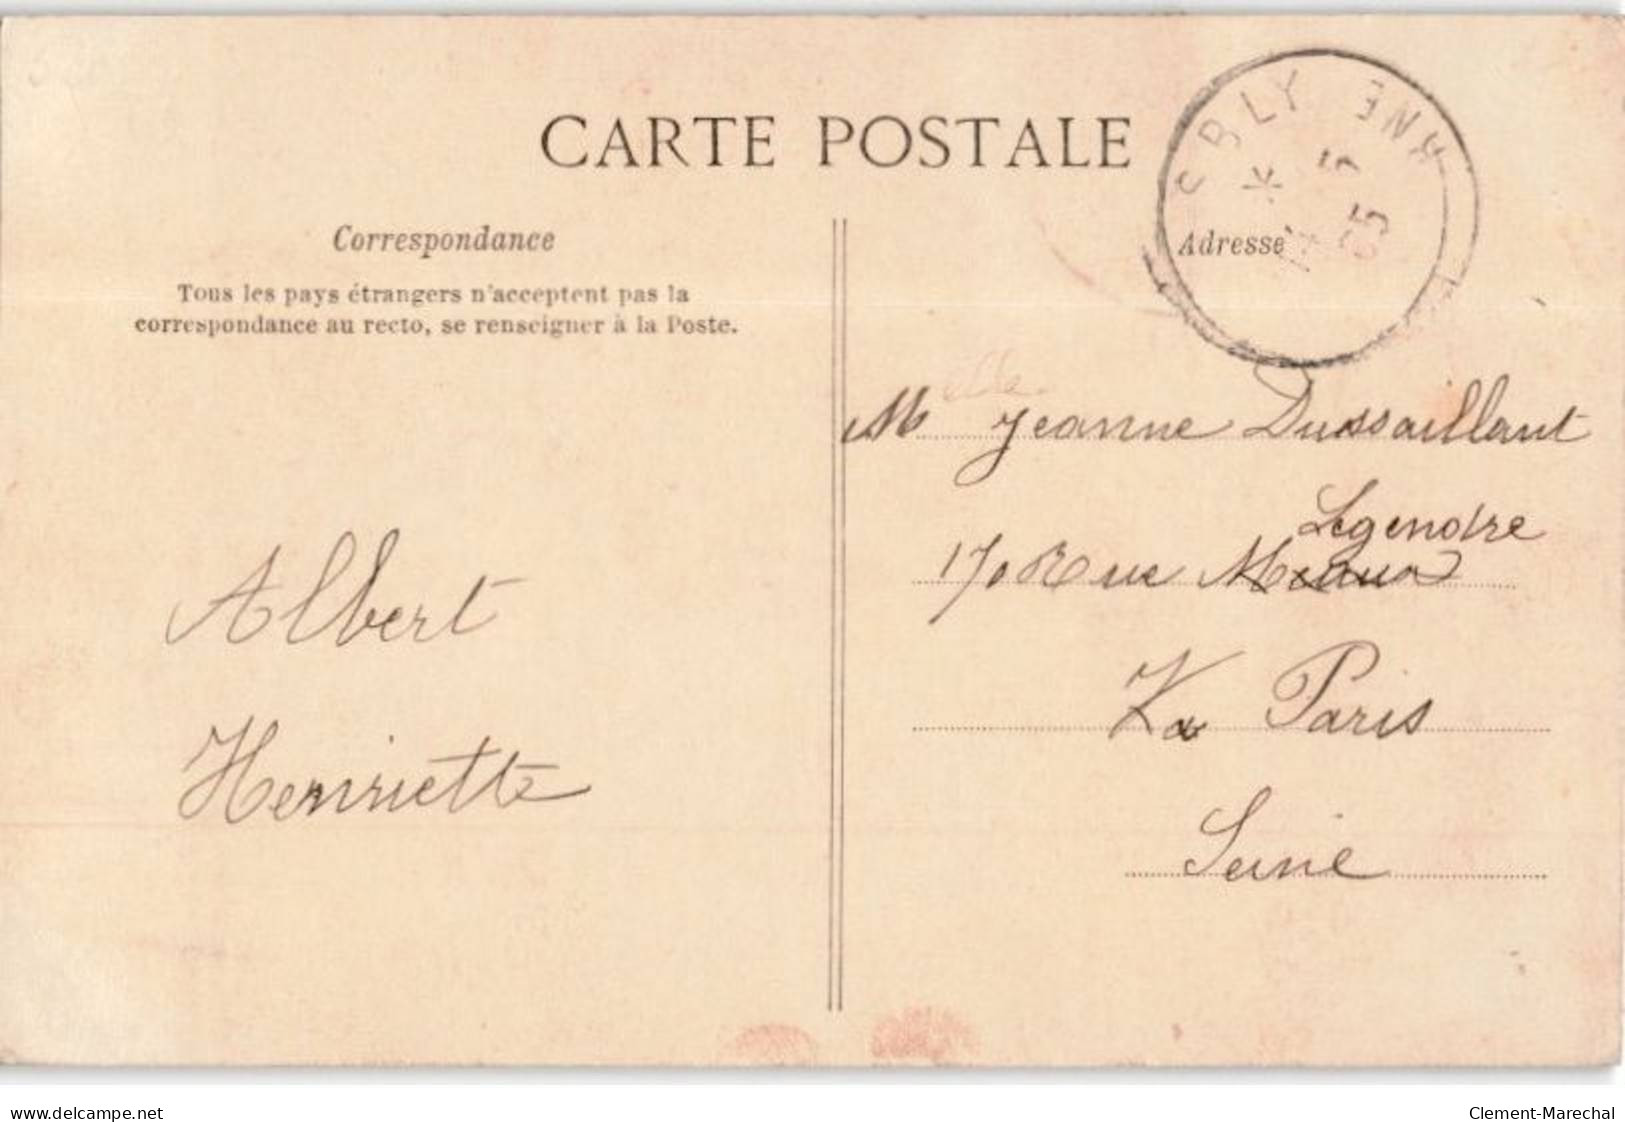 CARTE POSTALE
Correspondance
Tous les pays étrangers n'acceptent pas la
correspondance au recto, se renseigner à la Poste.
Adresse
M elle Jeanne Dussaillant
Legendre
170 Rue
Paris
Seine
Albert
Henriette
delcampe.net
Clement-Marechal